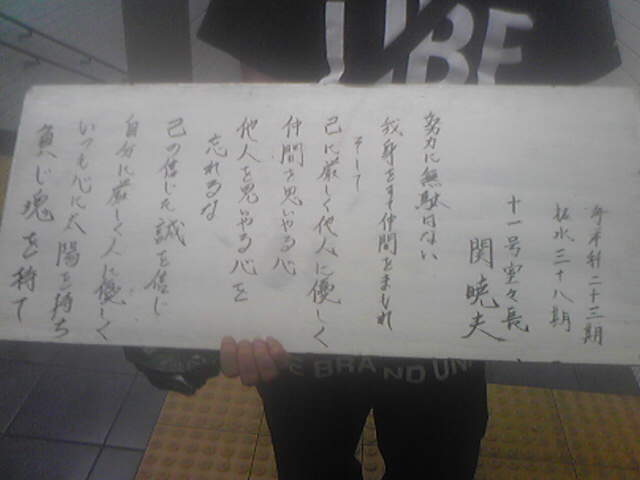 本科二十三期
拓水三十八期
十一号室々長
関暁夫
努力に無駄はない
我身をすて仲間をまもれ
そして
己に厳しく他人に優しく
仲間を思いやる心
他人を思いやる心を
忘れるな
己の信じた誠を信じ
自分に厳しく人に優しく
いつも心に太陽を持ち
負じ魂を持て
UBE
BRAND UN